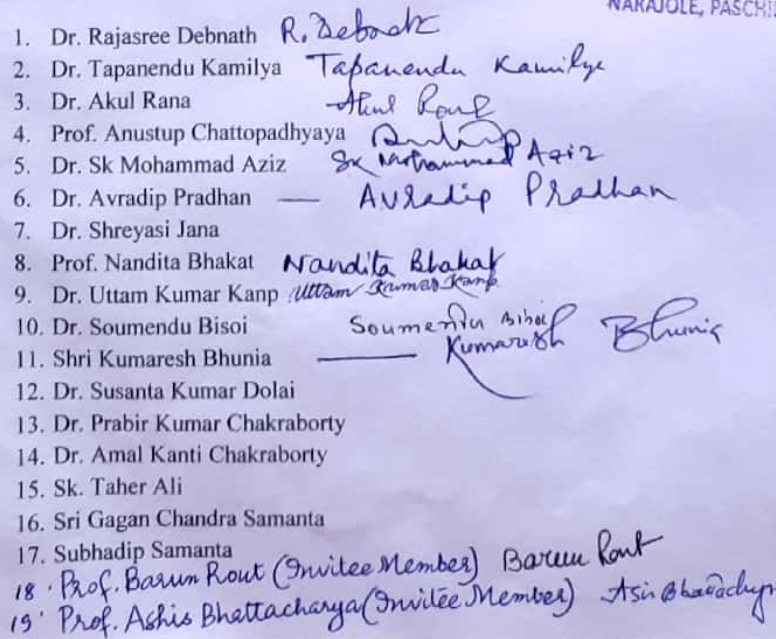 NARAJOLE, PASCHI
1. Dr. Rajasree Debnath R. Debnath
2. Dr. Tapanendu Kamilya Tapanendu Kamilya
3. Dr. Akul Rana Akul Rana
4. Prof. Anustup Chattopadhyaya
5. Dr. Sk Mohammad Aziz Sk Mohammad Aziz
6. Dr. Avradip Pradhan — Avradip Pradhan
7. Dr. Shreyasi Jana
8. Prof. Nandita Bhakat Nandita Bhakat
9. Dr. Uttam Kumar Kanp Uttam Kumar Kanp
10. Dr. Soumendu Bisoi Soumendu Bisoi
11. Shri Kumaresh Bhunia — Kumaresh Bhunia
12. Dr. Susanta Kumar Dolai
13. Dr. Prabir Kumar Chakraborty
14. Dr. Amal Kanti Chakraborty
15. Sk. Taher Ali
16. Sri Gagan Chandra Samanta
17. Subhadip Samanta
18. Prof. Barun Rout (Invitee Member) Barun Rout
19. Prof. Ashis Bhattacharya (Invitee Member)